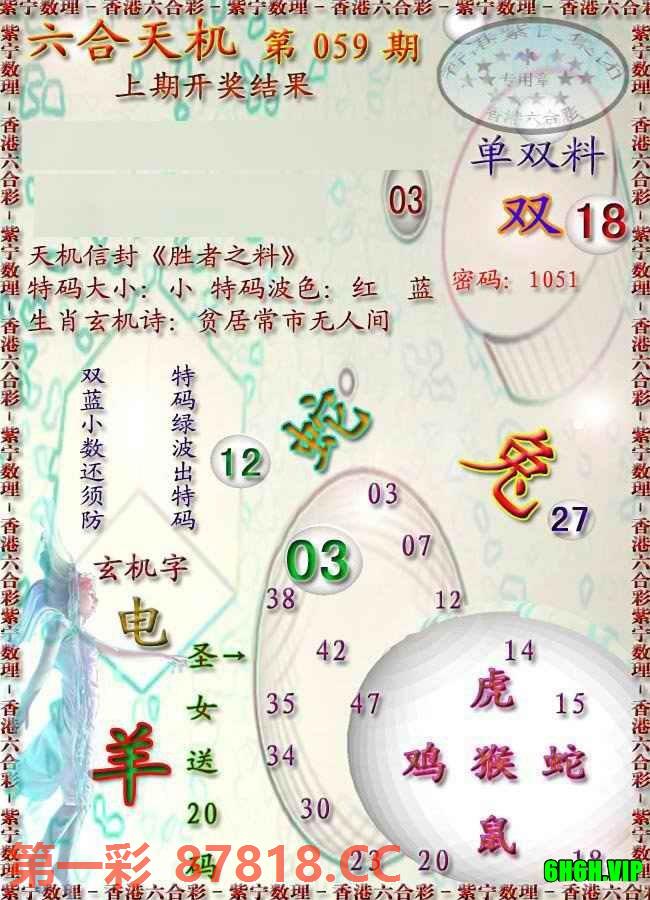 紫宁数理－香港六合彩－紫宁数理－香港六合彩－紫宁数理－香港六合彩
六合天机 第 059 期
上期开奖结果
专用章
香港六合彩
单双料
双 18
03
天机信封《胜者之料》
特码大小：小 特码波色：红 蓝
密码：1051
生肖玄机诗：贫居常市无人间
双蓝小数还须防
特码绿波出特码
蛇
12
兔
27
03
03
07
38
12
玄机字
电
圣女送20码
→
42
14
35
47
虎
15
羊
34
鸡 猴 蛇
30
鼠
23
20
18
第一彩 87818.CC
6H6H.VIP
紫宁数理－香港六合彩－紫宁数理－香港六合彩－紫宁数理－香港六合彩